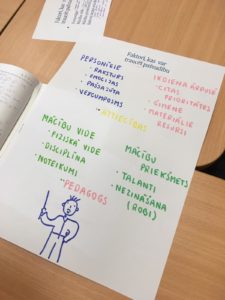 Faktori, kas var
traucēt pašvadību
PERSONĪGIE
• RAKSTURS
• EMOCIJAS
• PAŠSAJŪTA
• VECUMPOSMS
IKDIENA ĀRPUSĒ
• CITAS
PRIORITĀTES
• ĢIMENE
• MATERIĀLIE
RESURSI
ATTIECĪBAS
MĀCĪBU VIDE
• FIZISKĀ VIDE
• DISCIPLĪNA
• NOTEIKUMI
PEDAGOGS
MĀCĪBU
PRIEKŠMETS
• TALANTI
• NEZINĀŠANA
(ROBI)